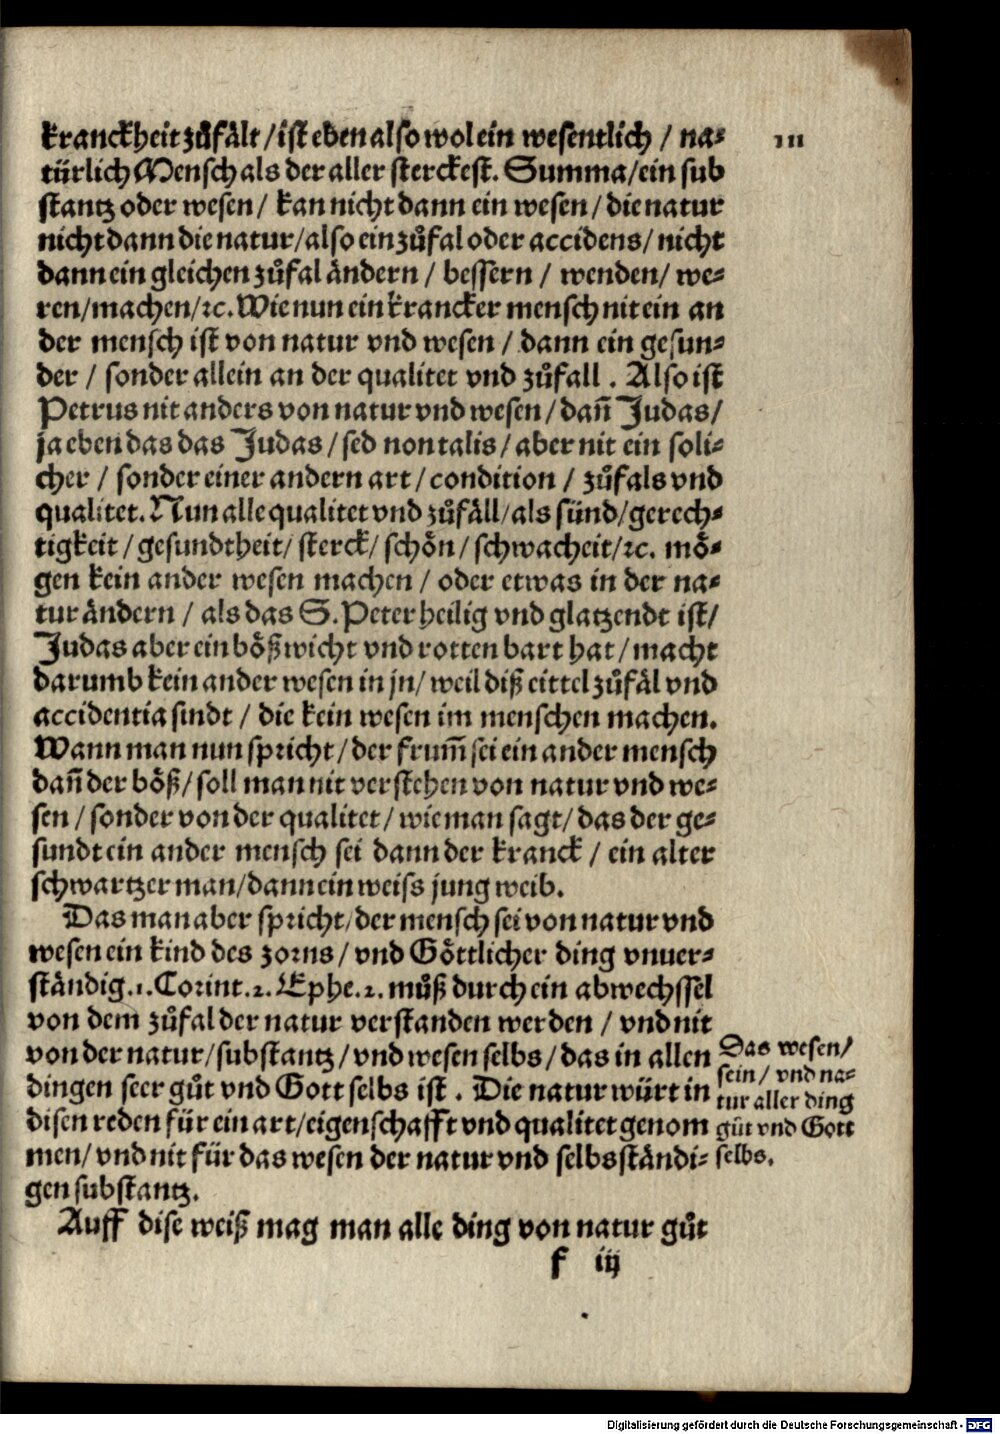 kranckheit zůfält / ist eben also wol ein wesentlich / na- III
türlich Mensch als der aller sterckest. Summa / ein sub
stantz oder wesen / kan nicht dann ein wesen / die natur
nicht dann die natur / also ein zůfal oder accidens / nicht
dann ein gleichen zůfal ändern / bessern / wenden / we-
ren / machen / ꝛc. Wie nun ein krancker mensch nit ein an
der mensch ist von natur vnd wesen / dann ein gesun-
der / sonder allein an der qualitet vnd zůfall. Also ist
Petrus nit anders von natur vnd wesen / dañ Judas /
ja eben das das Judas / sed non talis / aber nit ein soli-
cher / sonder einer andern art / condition / zůfals vnd
qualitet. Nun alle qualitet vnd zůfäll / als sünd / gerech-
tigkeit / gesundtheit / sterck / schön / schwacheit / ꝛc. mö-
gen kein ander wesen machen / oder etwas in der na-
tur ändern / als das S. Peter heilig vnd glatzendt ist /
Judas aber ein bößwicht vnd rotten bart hat / macht
darumb kein ander wesen in jn / weil diß eittel zůfäl vnd
accidentia sindt / die kein wesen im menschen machen.
Wann man nun spricht / der frum̃ sei ein ander mensch
dañ der böß / soll man nit verstehen von natur vnd we-
sen / sonder von der qualitet / wie man sagt / das der ge-
sundt ein ander mensch sei dann der kranck / ein alter
schwartzer man / dann ein weiss jung weib.
Das man aber spricht / der mensch sei von natur vnd
wesen ein kind des zorns / vnd Göttlicher ding vnuer-
ständig. 1. Corint. 2. Ephe. 2. můß durch ein abwechssel
von dem zůfal der natur verstanden werden / vnd nit
von der natur / substantz / vnd wesen selbs / das in allen
dingen seer gůt vnd Gott selbs ist. Die natur würt in
disen reden für ein art / eigenschafft vnd qualitet genom
men / vnd nit für das wesen der natur vnd selbsständi-
gen substantz.
Das wesen /
sein / vnd na-
tur aller ding
gůt vnd Gott
selbs.
Auff dise weiß mag man alle ding von natur gůt
f iij
Digitalisierung gefördert durch die Deutsche Forschungsgemeinschaft - DFG